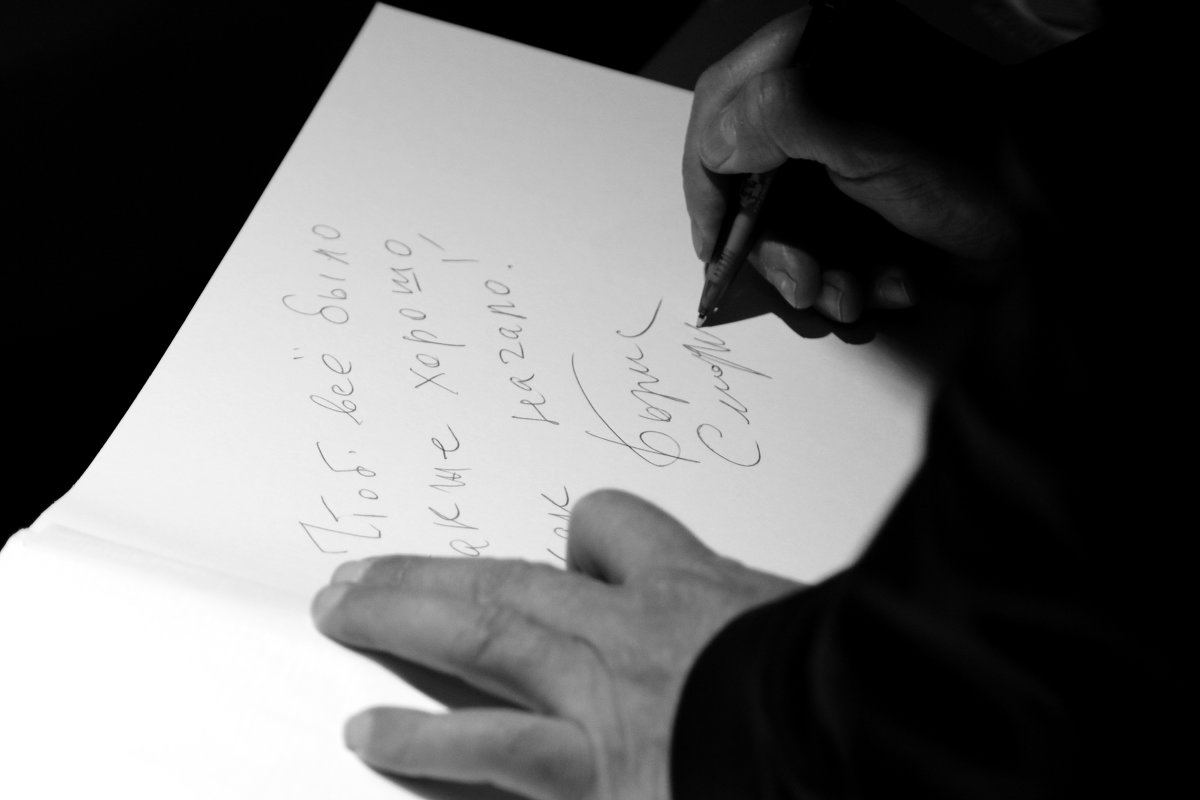 Чтоб всё было
акже хорошо,
как начало.
Борис